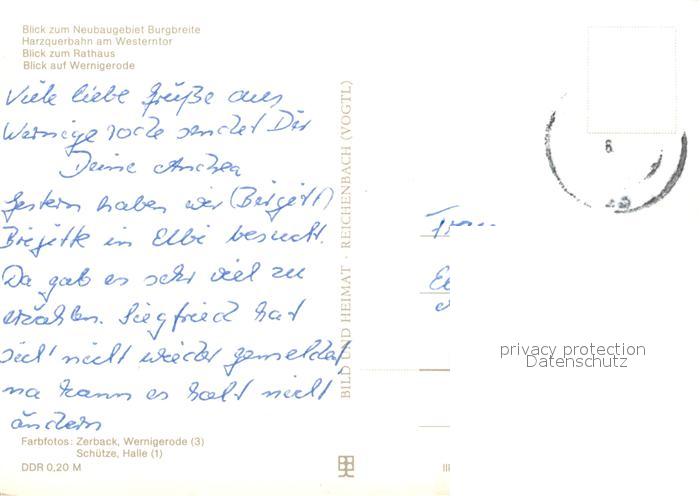 Blick zum Neubaugebiet Burgbreite
Harzquerbahn am Westerntor
Blick zum Rathaus
Blick auf Wernigerode
Viele liebe Grüße aus
Wernigerode sendet Dir
Deine Andrea
Gestern haben wir (Birgitt)
Brigitte in Elbi besucht.
Da gab es sehr viel zu
erzählen. Siegfried hat
sich nicht wieder gemeldet
na kann es halt nicht
ändern
Farbfotos: Zerback, Wernigerode (3)
Schütze, Halle (1)
DDR 0,20 M
BILD UND HEIMAT · REICHENBACH (VOGTL)
6.
privacy protection
Datenschutz